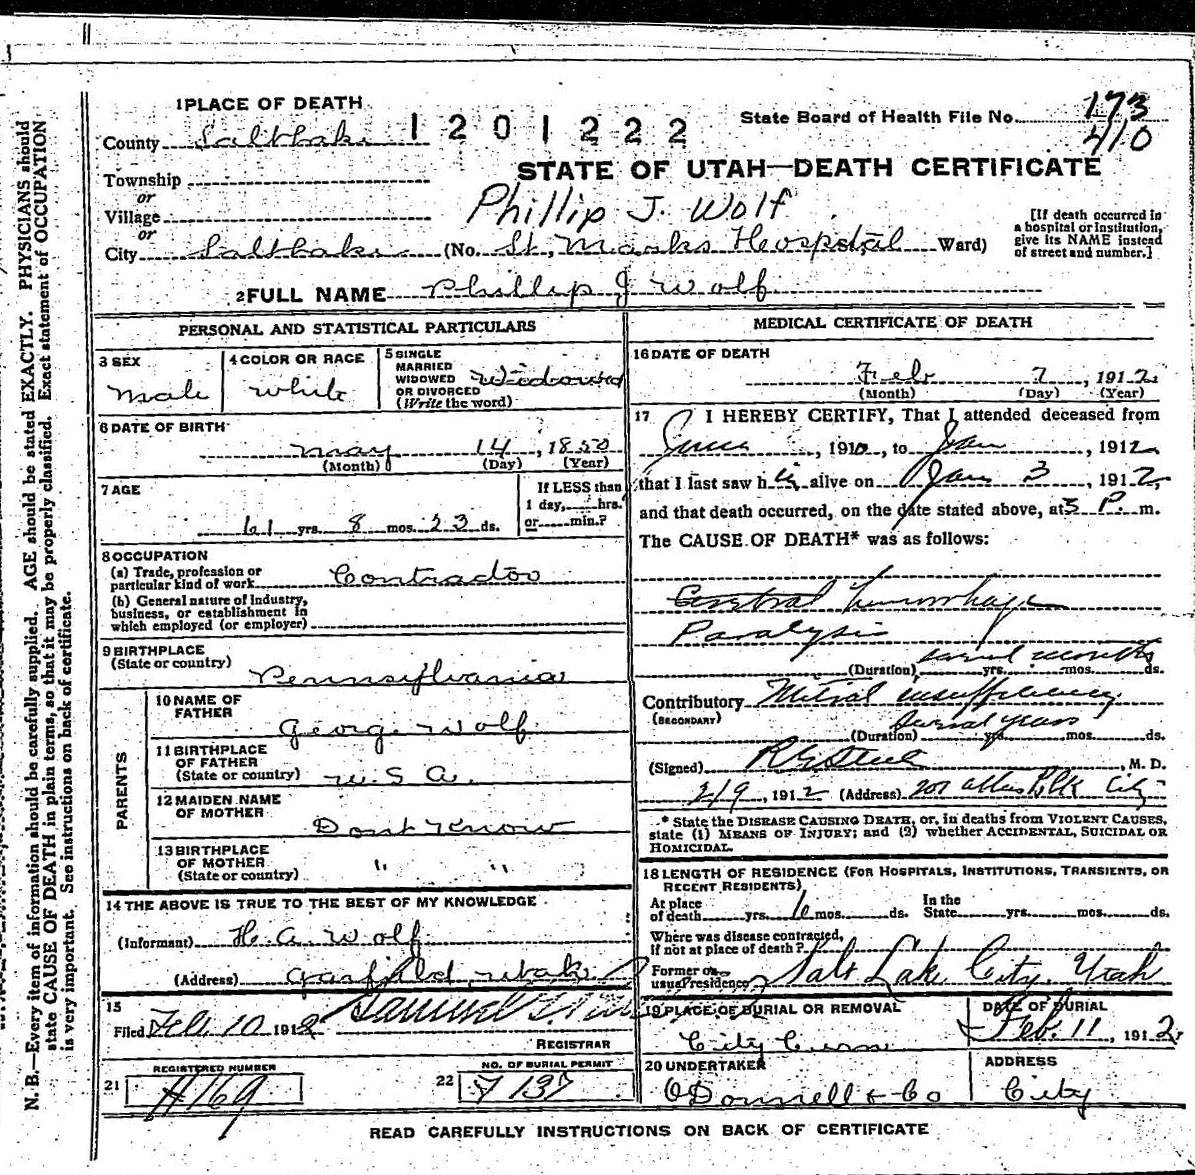 1 PLACE OF DEATH
County Salt Lake 1201222
State Board of Health File No. 173
410
Township
or
Village
or
City Salt Lake (No. St, Marks Hospital Ward)
STATE OF UTAH—DEATH CERTIFICATE
Phillip J. Wolf
[If death occurred in
a hospital or institution,
give its NAME instead
of street and number.]
2 FULL NAME Phillip J Wolf
PERSONAL AND STATISTICAL PARTICULARS
3 SEX
male
4 COLOR OR RACE
white
5 SINGLE
MARRIED
WIDOWED
OR DIVORCED
(Write the word)
Widowed
6 DATE OF BIRTH
May 14, 1850
(Month) (Day) (Year)
7 AGE
61 yrs. 8 mos. 23 ds.
If LESS than
1 day, hrs.
or min.?
8 OCCUPATION
(a) Trade, profession or
particular kind of work Contractor
(b) General nature of Industry,
business, or establishment in
which employed (or employer)
9 BIRTHPLACE
(State or country)
Pennsylvania
PARENTS
10 NAME OF
FATHER
George Wolf
11 BIRTHPLACE
OF FATHER
(State or country) U.S.A.
12 MAIDEN NAME
OF MOTHER
Dont Know
13 BIRTHPLACE
OF MOTHER
(State or country)
" "
14 THE ABOVE IS TRUE TO THE BEST OF MY KNOWLEDGE
(Informant) H. A. Wolf
(Address) Garfield Utah
15
Filed Feb. 10 1912 Samuel G.
REGISTRAR
REGISTERED NUMBER
21 H169
NO. OF BURIAL PERMIT
22 J 137
MEDICAL CERTIFICATE OF DEATH
16 DATE OF DEATH
Feb 7, 1912
(Month) (Day) (Year)
17 I HEREBY CERTIFY, That I attended deceased from
June, 1910, to Jan, 1912
that I last saw h alive on Jan 3, 1912,
and that death occurred, on the date stated above, at 3 P. m.
The CAUSE OF DEATH* was as follows:
hemorrhage
Paralysis
(Duration) several months yrs. mos. ds.
Contributory Mitral insufficiency
(SECONDARY)
(Duration) several years yrs. mos. ds.
(Signed) , M. D.
2/9, 1912 (Address) 201 Atlas Blk City
* State the DISEASE CAUSING DEATH, or, in deaths from VIOLENT CAUSES,
state (1) MEANS OF INJURY; and (2) whether ACCIDENTAL, SUICIDAL OR
HOMICIDAL.
18 LENGTH OF RESIDENCE (FOR HOSPITALS, INSTITUTIONS, TRANSIENTS, OR
RECENT RESIDENTS)
At place
of death yrs. 6 mos. ds. In the
State yrs. mos. ds.
Where was disease contracted,
if not at place of death?
Former or
usual residence Salt Lake City, Utah
19 PLACE OF BURIAL OR REMOVAL
City Cem
DATE OF BURIAL
Feb. 11, 1912
20 UNDERTAKER
O'Donnell & Co
ADDRESS
City
READ CAREFULLY INSTRUCTIONS ON BACK OF CERTIFICATE
N. B.—Every item of information should be carefully supplied. AGE should be stated EXACTLY. PHYSICIANS should
state CAUSE OF DEATH in plain terms, so that it may be properly classified. Exact statement of OCCUPATION
is very important. See instructions on back of certificate.